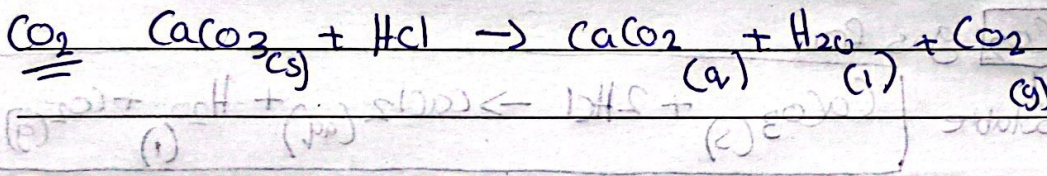 CO2 CaCO3(s) + HCl → CaCO2(a) + H2O(l) + CO2(g)